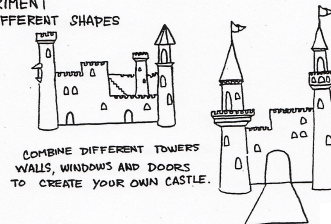 FFERENT SHAPES
COMBINE DIFFERENT TOWERS
WALLS, WINDOWS AND DOORS
TO CREATE YOUR OWN CASTLE.